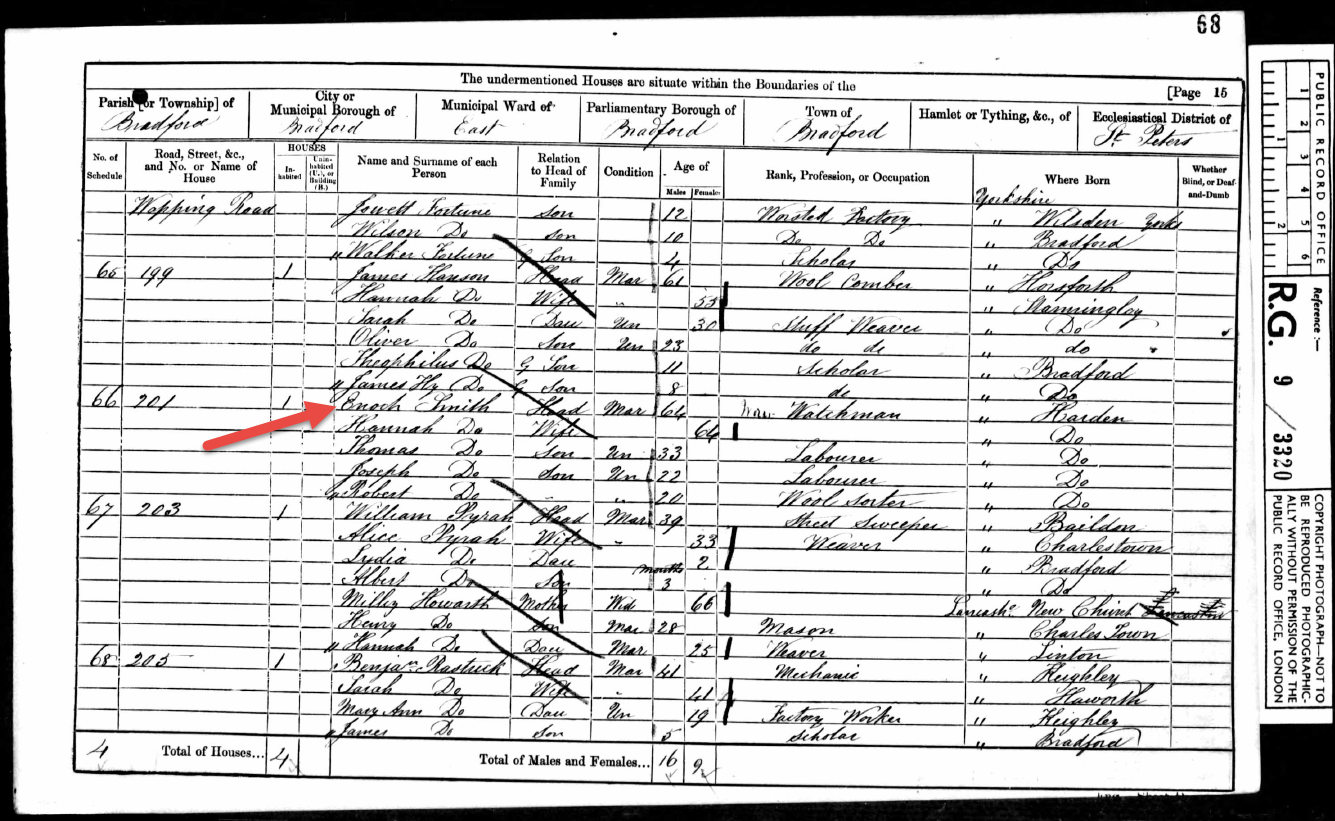 68
The undermentioned Houses are situate within the Boundaries of the
[Page 15
Parish [or Township] of
Bradford
City or Municipal Borough of
Bradford
Municipal Ward of
East
Parliamentary Borough of
Bradford
Town of
Bradford
Hamlet or Tything, &c., of
Ecclesiastical District of
St. Peters
No. of Schedule
Road, Street, &c., and No. or Name of House
HOUSES
In-habited
Unin-habited (U.), or Building (B.)
Name and Surname of each Person
Relation to Head of Family
Condition
Age of
Males
Females
Rank, Profession, or Occupation
Where Born
Whether Blind, or Deaf-and-Dumb
Yorkshire
Wapping Road Jowett Fortune Son 12 Worsted Factory " Wilsden Yorks
Wilson Do Son 10 Do Do " Bradford
Walker Fortune G Son 4 Scholar " Do
65 199 1 James Hanson Head Mar 61 Wool Comber " Horsforth
Hannah Do Wife " 55 " Manningley
Sarah Do Dau Un 30 Stuff Weaver " Do
Oliver Do Son Un 23 do do " do
Theophilus Do G Son 11 Scholar " Bradford
James Hy Do G Son 8 do " Do
66 201 1 Enoch Smith Head Mar 64 Watchman " Harden
Hannah Do Wife 64 " Do
Thomas Do Son Un 33 Labourer " Do
Joseph Do Son Un 22 Labourer " Do
Robert Do " " 20 Wool Sorter " Do
67 203 1 William Pyrah Head Mar 39 Street Sweeper " Baildon
Alice Pyrah Wife " 33 Weaver " Charlestown
Lydia Do Dau 2 " Bradford
Albert Do Son months 3 " Do
Milley Howarth Mother Wid 66 Lancashe New Church
Henry Do Son Mar 28 Mason " Charles Town
Hannah Do Dau Mar 25 Weaver " Linton
68 205 1 Benjan Rastrick Head Mar 41 Mechanic " Keighley
Sarah Do Wife " 41 " Haworth
Mary Ann Do Dau Un 19 Factory Worker " Keighley
James Do Son 5 Scholar " Bradford
4 Total of Houses... 4 Total of Males and Females... 16 9
PUBLIC RECORD OFFICE
1 2 3 4 5 6
1 2
Reference:—
R.G. 9 / 3320
COPYRIGHT PHOTOGRAPH—NOT TO BE REPRODUCED PHOTOGRAPHIC-ALLY WITHOUT PERMISSION OF THE PUBLIC RECORD OFFICE, LONDON